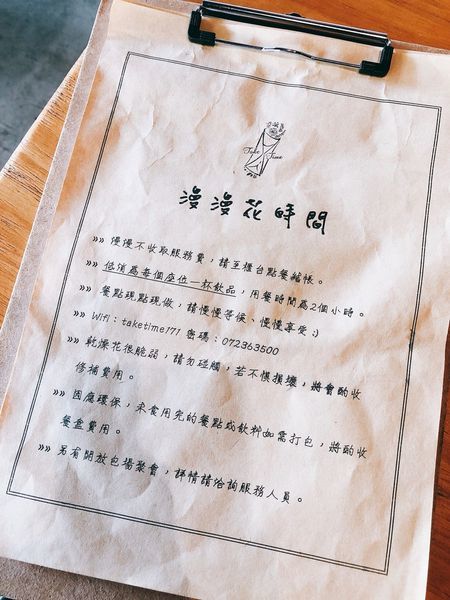 Take Time
漫漫花時間
»» 慢慢不收取服務費，請至櫃台點餐結帳。
»» 低消為每個座位一杯飲品，用餐時間為2個小時。
»» 餐點現點現做，請慢慢等候、慢慢享受:)
»» Wifi：taketime171 密碼：072363500
»» 乾燥花很脆弱，請勿碰觸，若不慎損壞，將會酌收
修補費用。
»» 因應環保，未食用完的餐點或飲料如需打包，將酌收
餐盒費用。
»» 另有開放包場聚會，詳情請洽詢服務人員。